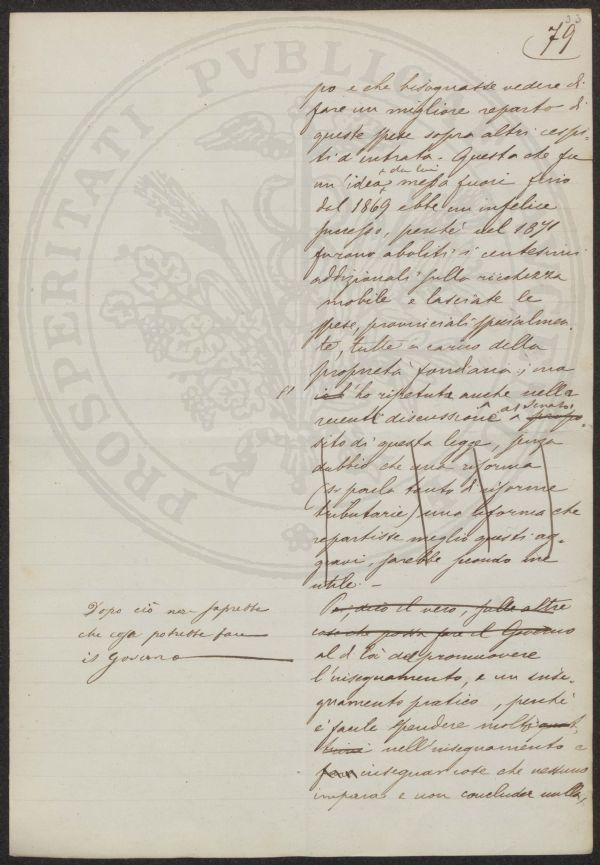 33
79
PROSPERITATI PVBLICAE
po e che bisognasse vedere di
fare un migliore reparto di
queste spese sopra altri cespi-
ti d'entrata. Questa che fu
un'idea da lui messa fuori fino
dal 1869 ebbe un infelice
successo, perché nel 1871
furono aboliti i centesimi
addizionali sulla ricchezza
mobile e lasciate le
spese, provinciali specialmen-
te, tutte a carico della
proprietà fondiaria; ma
si l'ho ripetuta anche nella
recente discussione al Senato a propo-
sito di questa legge, senza
dubbio che una riforma
(si parla tanto di riforme
tributarie) una riforma che
repartisse meglio questi ag-
gravi, sarebbe secondo me
utile. -
Dopo ciò non saprebbe
che cosa potrebbe fare
il Governo
Poi, dirò il vero, sulle altre
cose che possa fare il Governo
al di là del promuovere
l'insegnamento, e un inse-
gnamento pratico, perché
è facile spendere molti
nell'insegnamento e
insegnar cose che nessuno
impara e non concluder nulla,